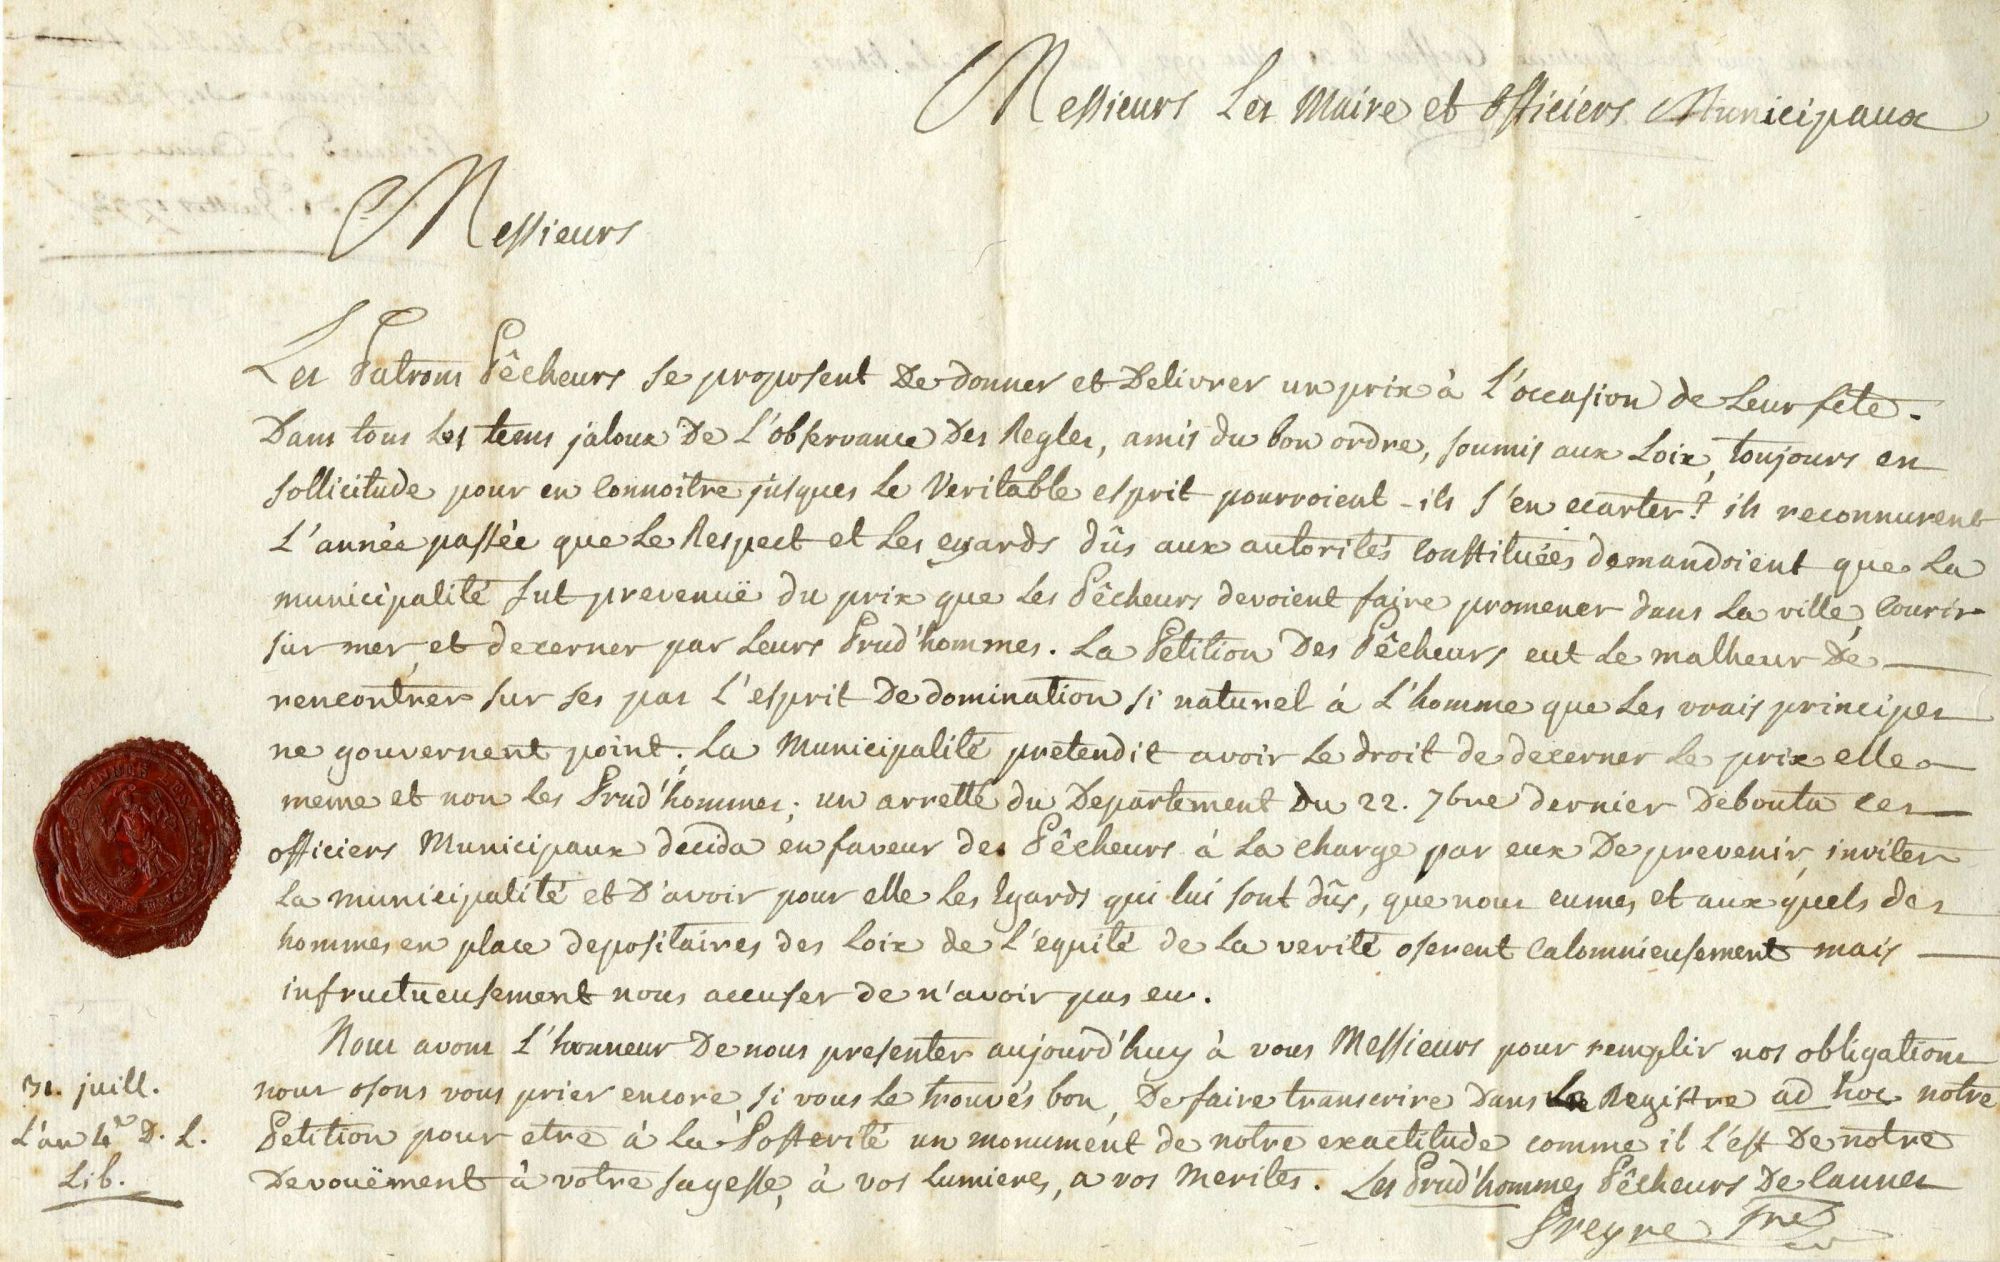 Messieurs Les Maire et Officiers Municipaux
Messieurs
Les Patrons Pêcheurs se proposent De donner et Delivrer un prix à L'occasion de Leur fête.
Dans tous Les tems jaloux De L'observance Des Regles, amis du bon ordre, soumis aux Loix, toujours en
sollicitude pour en connoitre jusques Le Veritable esprit pourroient-ils s'en ecarter? ils reconnurent
L'année passée que Le Respect et Les egards dûs aux autorités constituées demandoient que La
municipalité fut prevenuë du prix que Les Pêcheurs devoient faire promener dans La ville, courir
sur mer, et decerner par Leurs Prud'hommes. La Petition Des Pêcheurs eut Le malheur De
rencontrer sur ses pas L'esprit De domination si naturel à L'homme que Les vrais principes
ne gouvernent point. La Municipalité pretendit avoir Le droit de decerner Le prix elle
meme et non Les Prud'hommes; un arretté du Departement Du 22. 7bre dernier Debouta ces
officiers Municipaux decida en faveur des Pêcheurs à La charge par eux De prevenir, inviter
La municipalité et D'avoir pour elle Les Egards qui lui sont dûs, que nous eumes, et aux quels des
hommes en place depositaires des Loix de L'equité de La verité oserent calomnieusement mais
infructueusement nous accuser de n'avoir pas eu.
Nous avons L'honneur De nous presenter aujourd'huy à vous Messieurs pour remplir nos obligations
nous osons vous prier encore, si vous Le trouvés bon, De faire transcrire Dans Le Registre ad hoc notre
Petition pour etre à La Posterité un monument de notre exactitude comme il L'est De notre
Devouëment à votre sagesse, à vos Lumieres, a vos Merites. Les Prud'hommes Pêcheurs De Cannes
Preyre
31. juill.
L'an 4e D. L.
Lib.